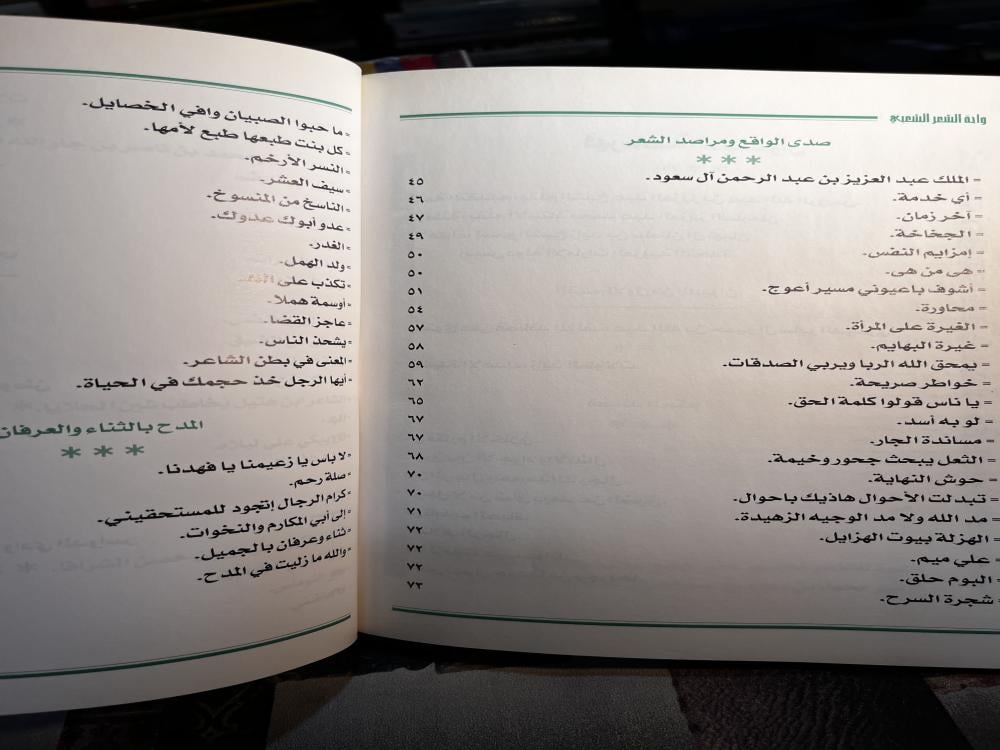 واحة الشعر الشعبي
صدى الواقع ومراصد الشعر
***
= الملك عبد العزيز بن عبد الرحمن آل سعود. ٤٥
= أي خدمة. ٤٦
= آخر زمان. ٤٧
= الجخاخة. ٤٩
= إمزايم النفس. ٥٠
= هي من هي. ٥٠
= أشوف باعيوني مسير أعوج. ٥١
= محاورة. ٥٤
= الغيرة على المرأة. ٥٧
= غيرة البهايم. ٥٨
= يمحق الله الربا ويربي الصدقات. ٥٩
= خواطر صريحة. ٦٢
= يا ناس قولوا كلمة الحق. ٦٥
= لو به أسد. ٦٧
= مساندة الجار. ٦٧
= الثعل يبحث جحور وخيمة. ٦٨
= حوش النهاية. ٧٠
= تبدلت الأحوال هاذيك باحوال. ٧٠
= مد الله ولا مد الوجيه الزهيدة. ٧١
= الهزلة بيوت الهزايل. ٧٢
= علي ميم. ٧٢
= البوم حلق. ٧٢
= شجرة السرح. ٧٣
= ما حبوا الصبيان وافي الخصايل.
= كل بنت طبعها طبع لأمها.
= النسر الأرخم.
= سيف العشر.
= الناسخ من المنسوخ.
= عدو أبوك عدوك.
= الغدر.
= ولد الهمل.
= تكذب على
= أوسمة هملا.
= عاجز القضا.
= يشحذ الناس.
= المعنى في بطن الشاعر.
= أيها الرجل خذ حجمك في الحياة.
المدح بالثناء والعرفان
***
= لا باس يا زعيمنا يا فهدنا.
= صلة رحم.
= كرام الرجال إتجود للمستحقيني.
= إلى أبي المكارم والنخوات.
= ثناء وعرفان بالجميل.
= والله ما زليت في المدح.